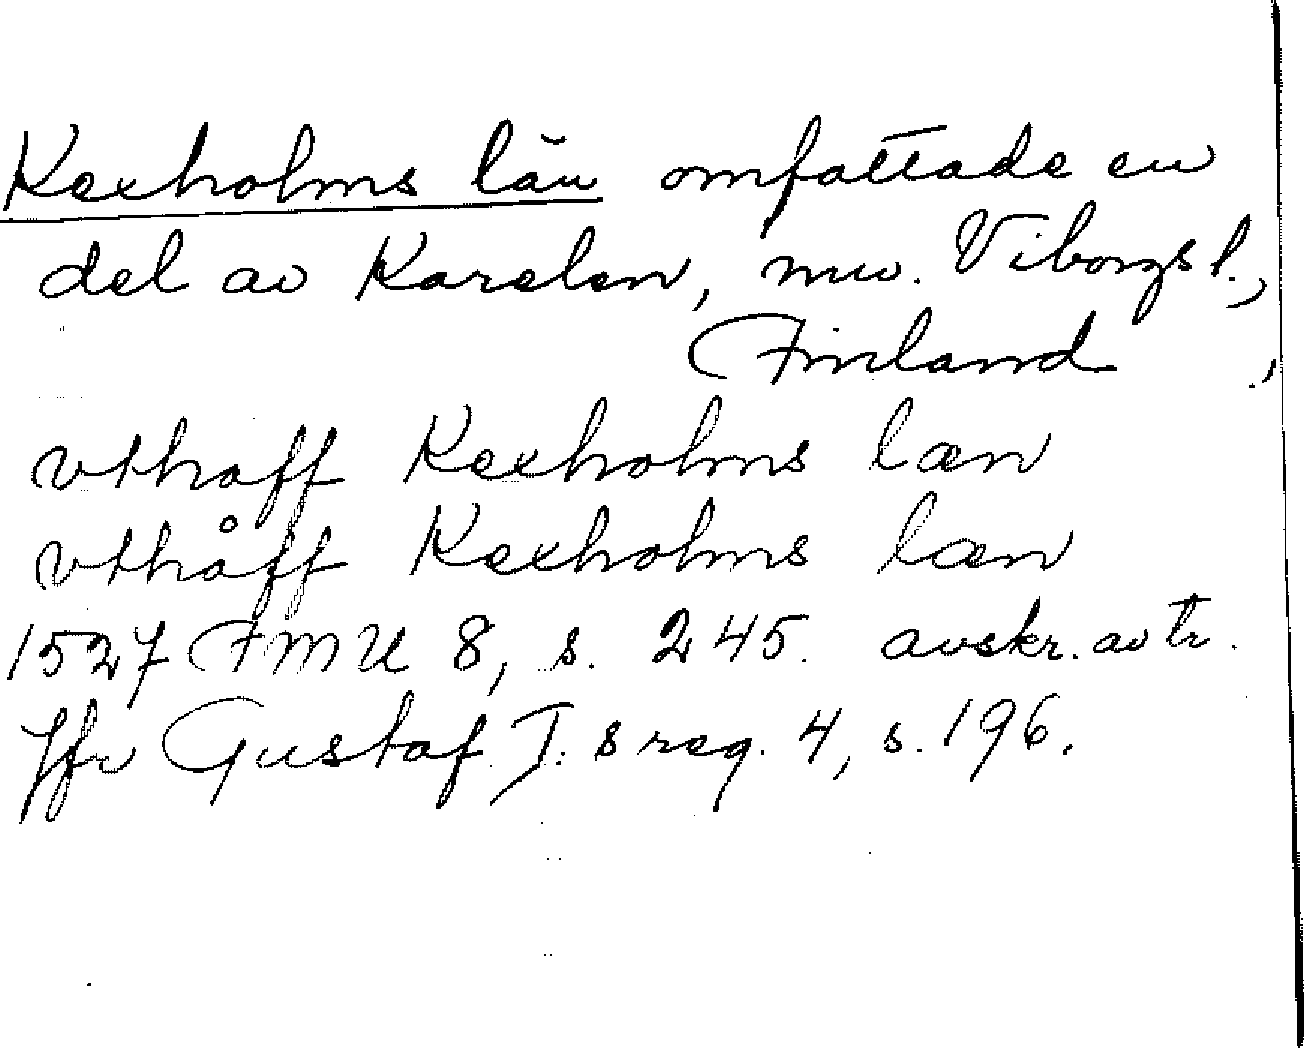 Kexholms län omfattade en
del av Karelen, nuv. Viborgs l.,
Finland,
vthaff Kexholms læn
vthåff Kexholms læn
1527 FMU 8, s. 245. avskr. av tr.
Jfr Gustaf I:s reg. 4, s. 196.